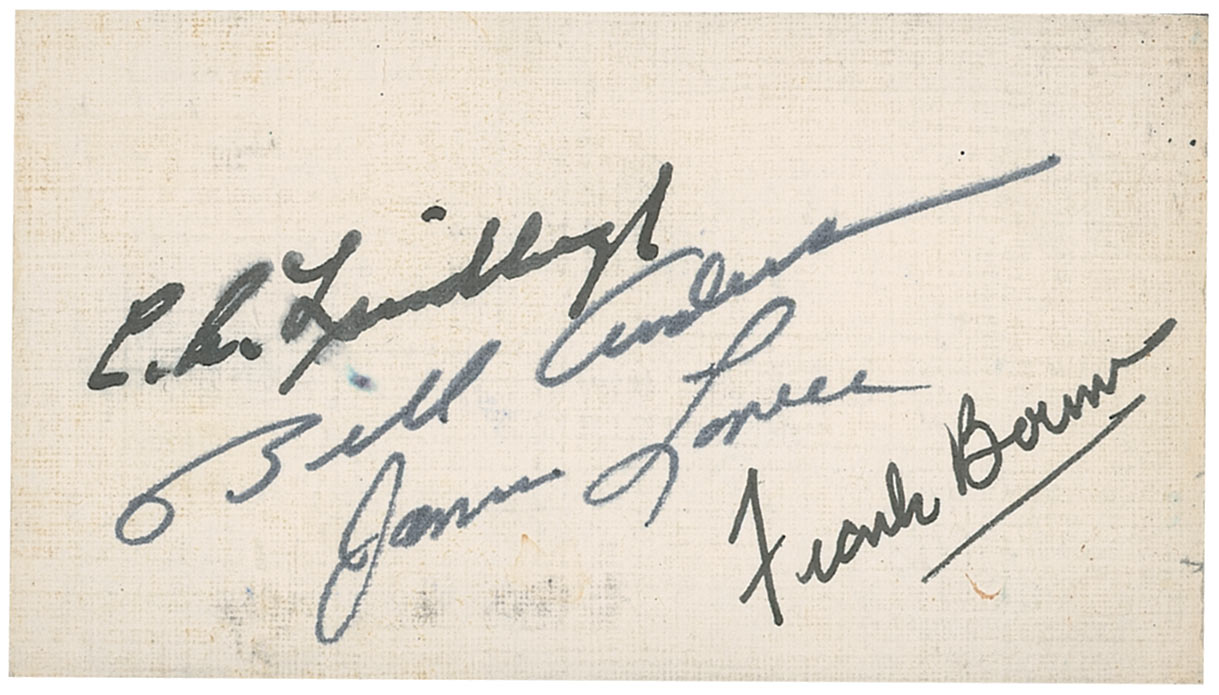 C.A. Lindbergh
Bill Anders
James Lovell
Frank Borman